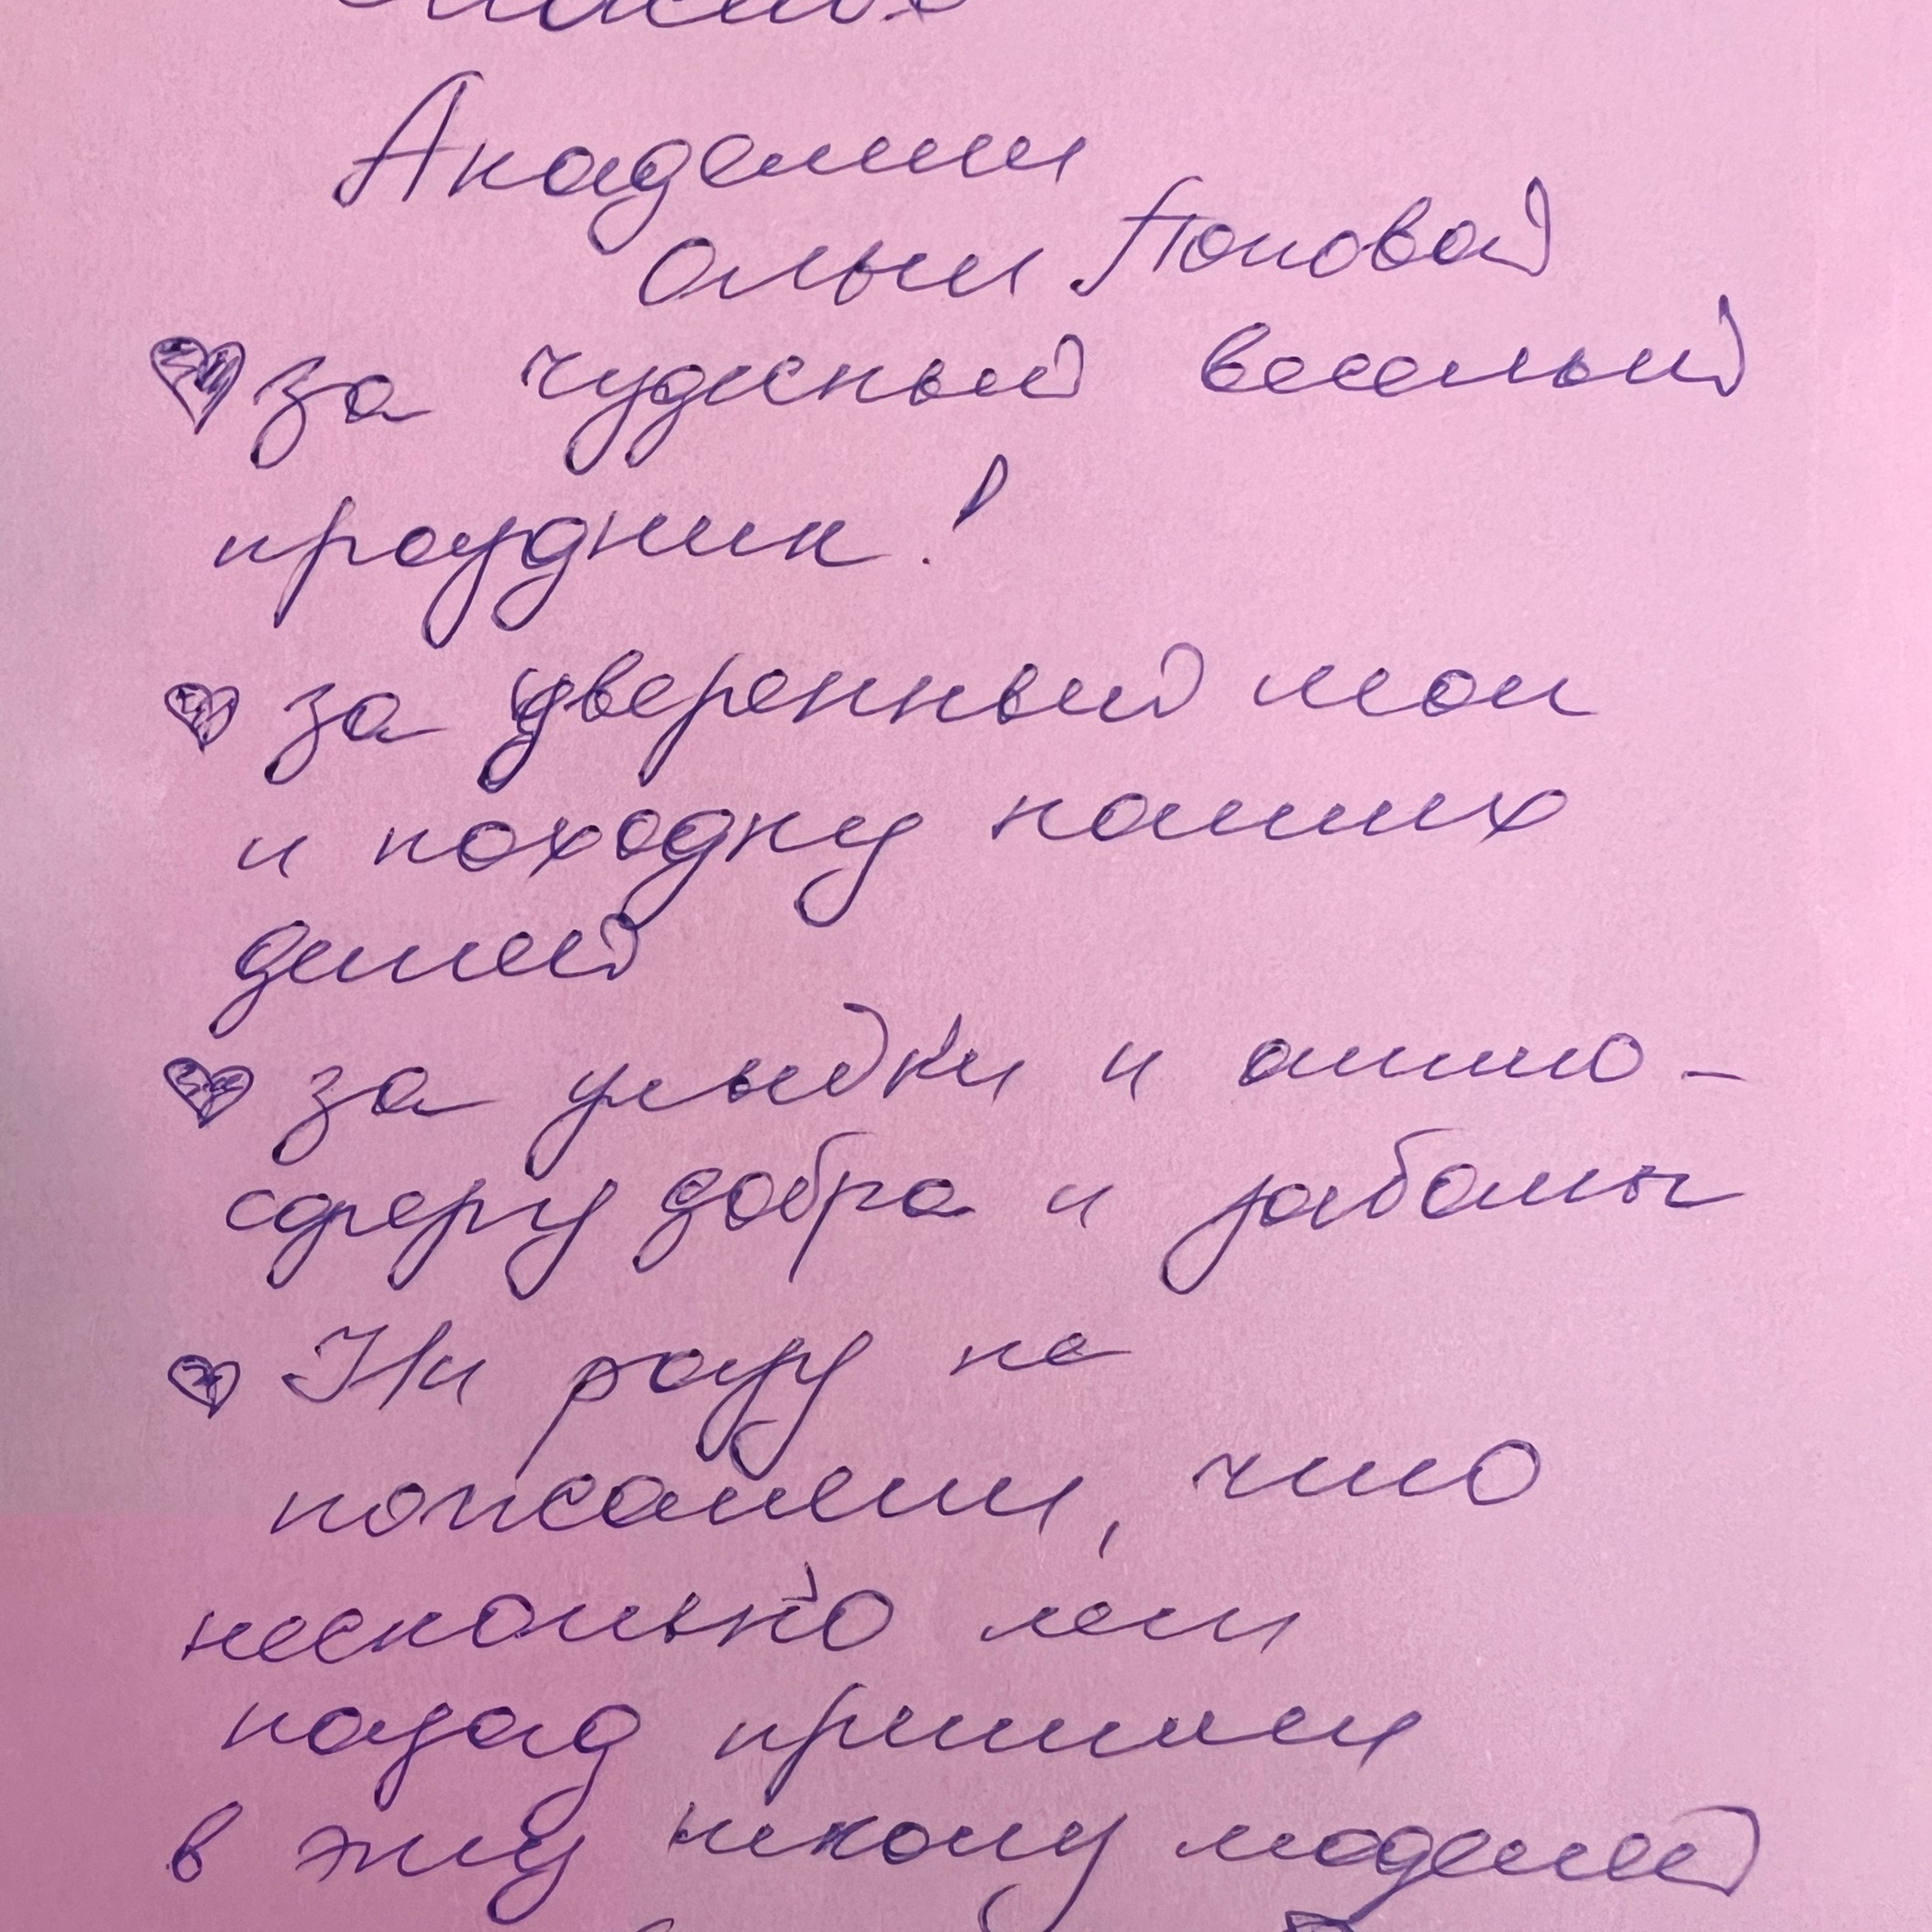 Академии
Ольги Поповой
за чудесный веселый
праздник!
за уверенный
и походку наших
детей
за улыбки и атмо-
сферу добра и заботы
Ни разу не
пожалели, что
несколько лет
назад пришли
в эту школу моделей